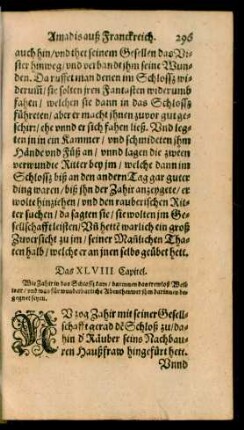 Amadis auß Franckreich. 296
auch hin / vnd thet seinem Gesellen das Vi-
sier hinweg / vnd verband jhm seine Wun-
den. Da rufft man denen im Schlossz wi-
derum̃ / sie solten jren Fantasten widerumb
fahen / welchen sie dann in das Schlossz
führeten / aber er macht jhnen zuvor gut ge-
schirr / ehe vnnd er sich fahen ließ. Vnd leg-
ten jn in ein Kammer / vnd schmideten jhm
Hände vnd Füß an / vnnd lagen die zween
verwundte Ritter bey jm / welche dann im
Schlossz biß an den andern Tag gar guter
ding waren / biß jhn der Zahir anzeygete / er
wolte hinziehen / vnd den rauberischen Rit-
ter suchen / da sagten sie / sie wolten jm Ge-
sellschafft leisten / Vñ hette warlich ein groß
Zuversicht zu jm / seiner Mañlichen Tha-
ten halb / welche er an jnen selbs geübet hett.
Das XLVIII Capitel.
Wie Zahir in das Schlossz kam / darinnen der trewloß
vnd was für wunderbarliche Abenthewer jhm darinnen be-
gegnet seyen.
NV zog Zahir mit seiner Gesell-
schafft gerad dẽ Schloß zu / da-
hin d' Räuber seins Nachbau-
ren Haußfraw hingeführt hett.
Vnnd